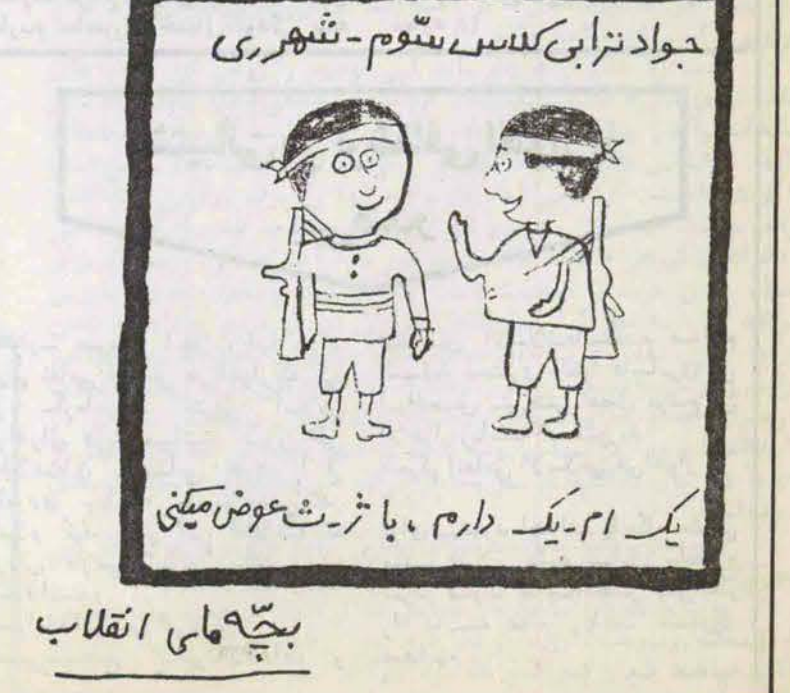 جواد ترابی کلاس سّوم - شهر ری
یک ام-یک دارم ، با ژ-ث عوض میکنی
بچّه های انقلاب